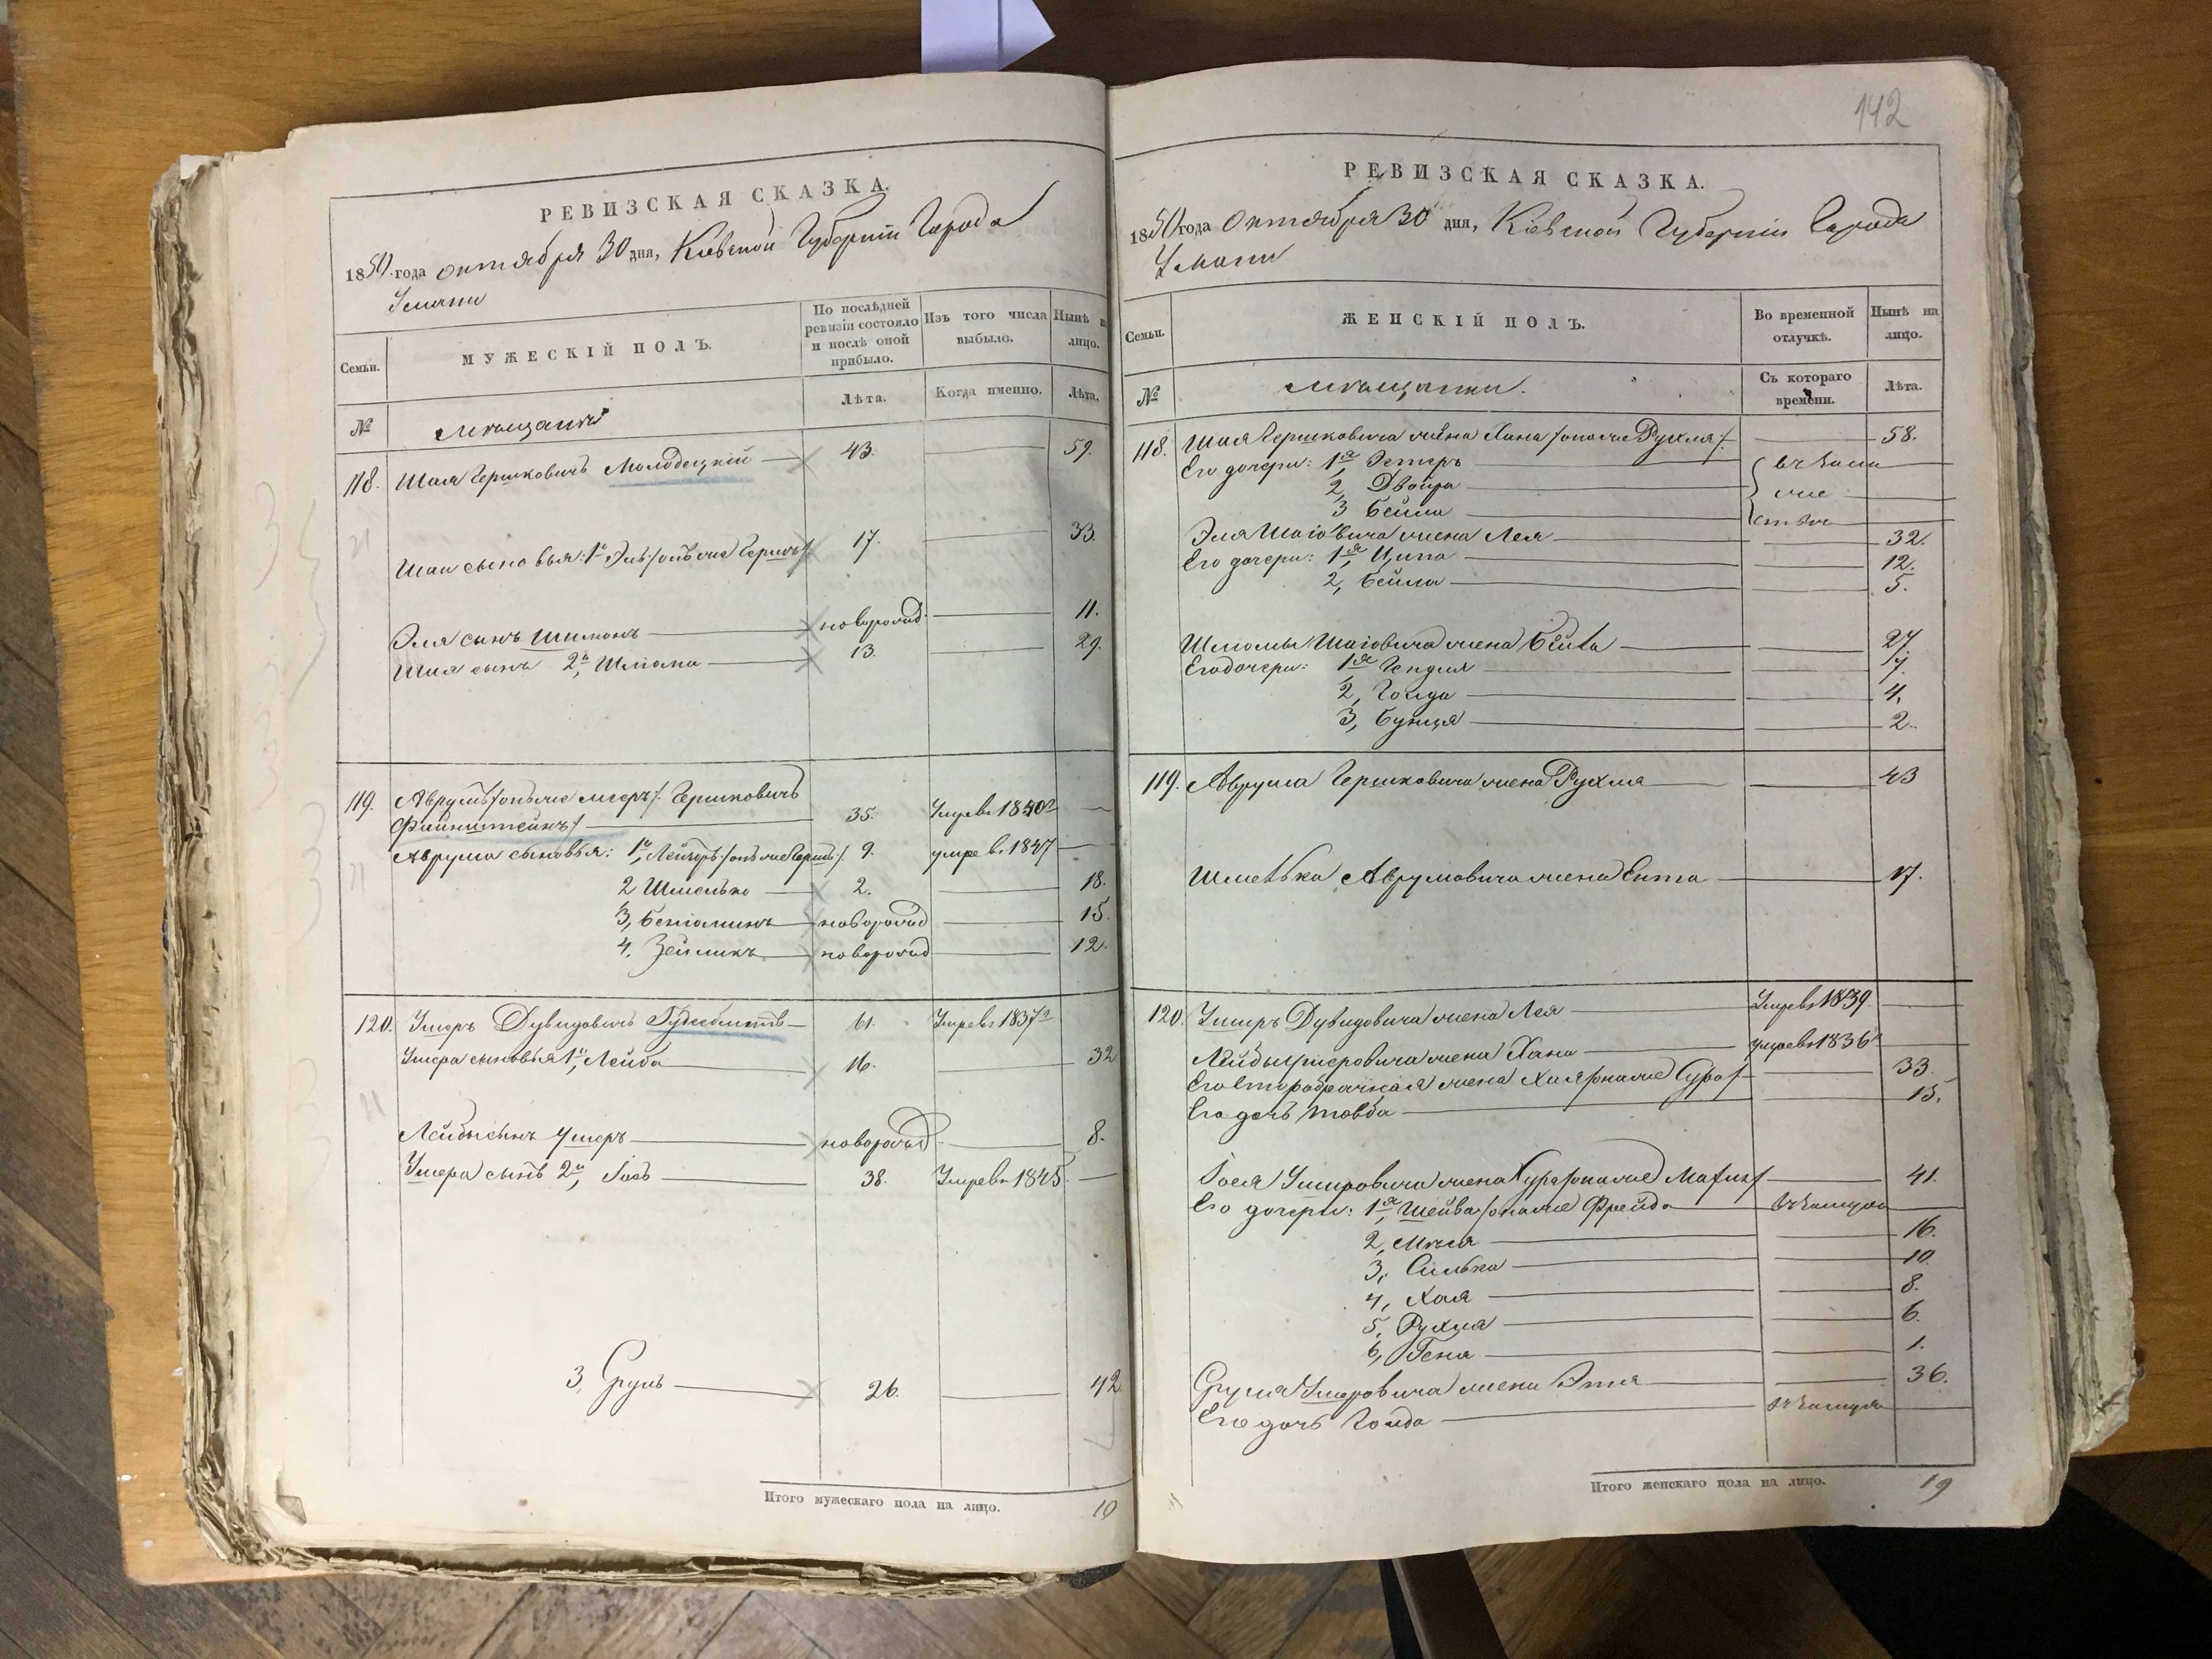 РЕВИЗСКАЯ СКАЗКА.
1850 года октября 30 дня, Кіевской Губерніи Города
Умани
Семьи.
МУЖЕСКІЙ ПОЛЪ.
По послѣдней ревизіи состояло и послѣ оной прибыло.
Изъ того числа выбыло.
Нынѣ на лицо.
№
Мѣщане
Лѣта.
Когда именно.
Лѣта.
118. Шая Гершковичъ Молодецкій 43. 59.
Шаи сыновья: 1й Эль /онъ же Гершъ/ 17. 33.
Эля сынъ Шимонъ новорожд. 11.
Шая сынъ 2й, Шліома 13. 29.
119. Аврумъ /онъ же Меер/ Гершковичъ
Файнштейнъ/ 35. Умре въ 1840г
Аврума сыновья: 1й, Лейзоръ /онъ же Гершъ/. 9. умре в. 1847
2 Шмелько 2. 18.
3, Беніаминъ новорожд 15.
4, Зейликъ новорожд 12.
120. Ушеръ Дувидовичъ 61. Умре въ 1837г
Ушера сыновья 1й, Лейба 16. 32
Лейбы сынъ Ушеръ новорожд. 8.
Ушера сынъ 2й, Іось 38. Умре въ 1845
3, Сруль 26. 42
Итого мужескаго пола на лицо. 10
142
РЕВИЗСКАЯ СКАЗКА.
1850 года Октября 30 дня, Кіевской Губерніи Города
Умани
Семьи.
ЖЕНСКІЙ ПОЛЪ.
Во временной отлучкѣ.
Нынѣ на лицо.
№
Мѣщанки.
Съ котораго времени.
Лѣта.
118. Шая Гершковича жена Хана /она же Рухля/. 58.
Его дочери: 1я, Эстеръ
2, Двойра
3 Бейла
Эля Шаіовича жена Лея 32.
Его дочери: 1я, Ципа 12.
2, Бейла 5.
Шліомы Шаіовича жена Бейла 27.
Его дочери: 1я Гендля 7.
2, Голда 4.
3, Бунця 2.
119. Аврума Гершковича жена Рухля 43
Шмелька Аврумовича жена Ента 17.
120. Ушеръ Дувидовича жена Лея Умре въ 1839
Лейбы Ушеровича жена Хана умре въ 1836г
Его второбрачная жена Хая /она же Сура/ 33.
Его дочь Товба 15.
Іося Ушеровича жена /она же 41.
Его дочери: 1я, Шейва /она же Фрейда въ замуж
2, Мася 16.
3, Силька 10.
4, Хая 8.
5, Рухля 6.
6, Геня 1.
Сруля Ушеровича жена Этя 36.
Его дочь Голда въ замуж
Итого женскаго пола на лицо. 19